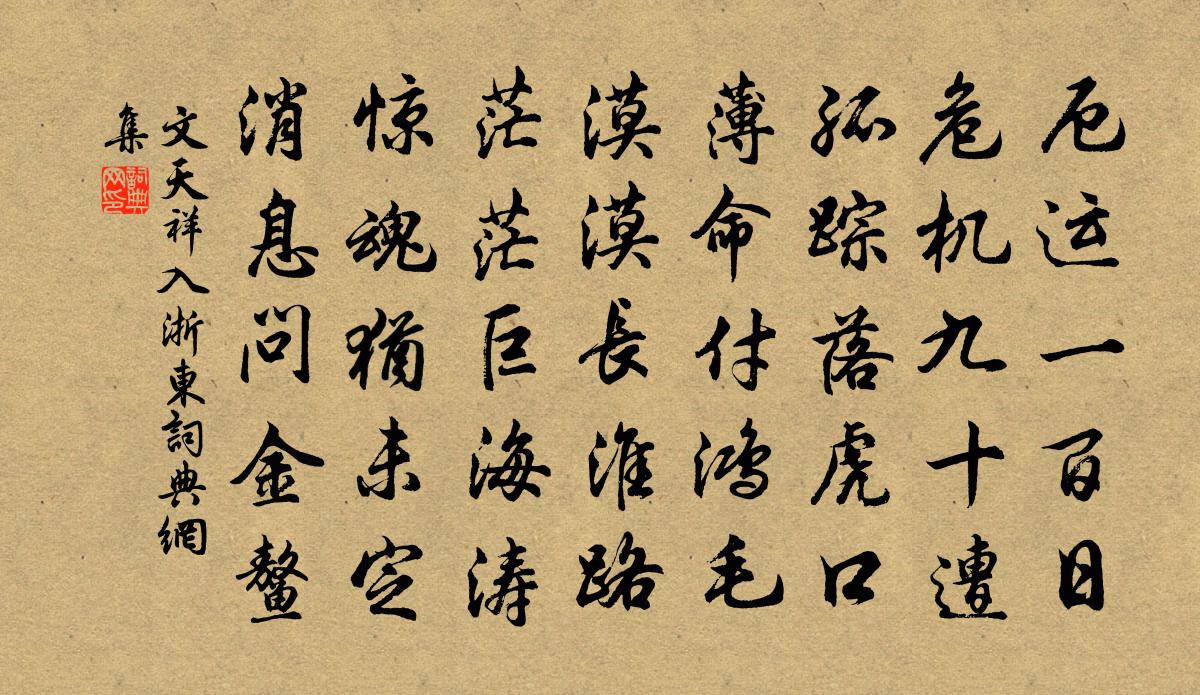 厄运一百日
危机九十遭
孤踪落虎口
薄命付鸿毛
漠漠長淮路
茫茫巨海涛
惊魂犹未定
消息问金鳌
文天祥入浙東詞典網
集
詞典
网印